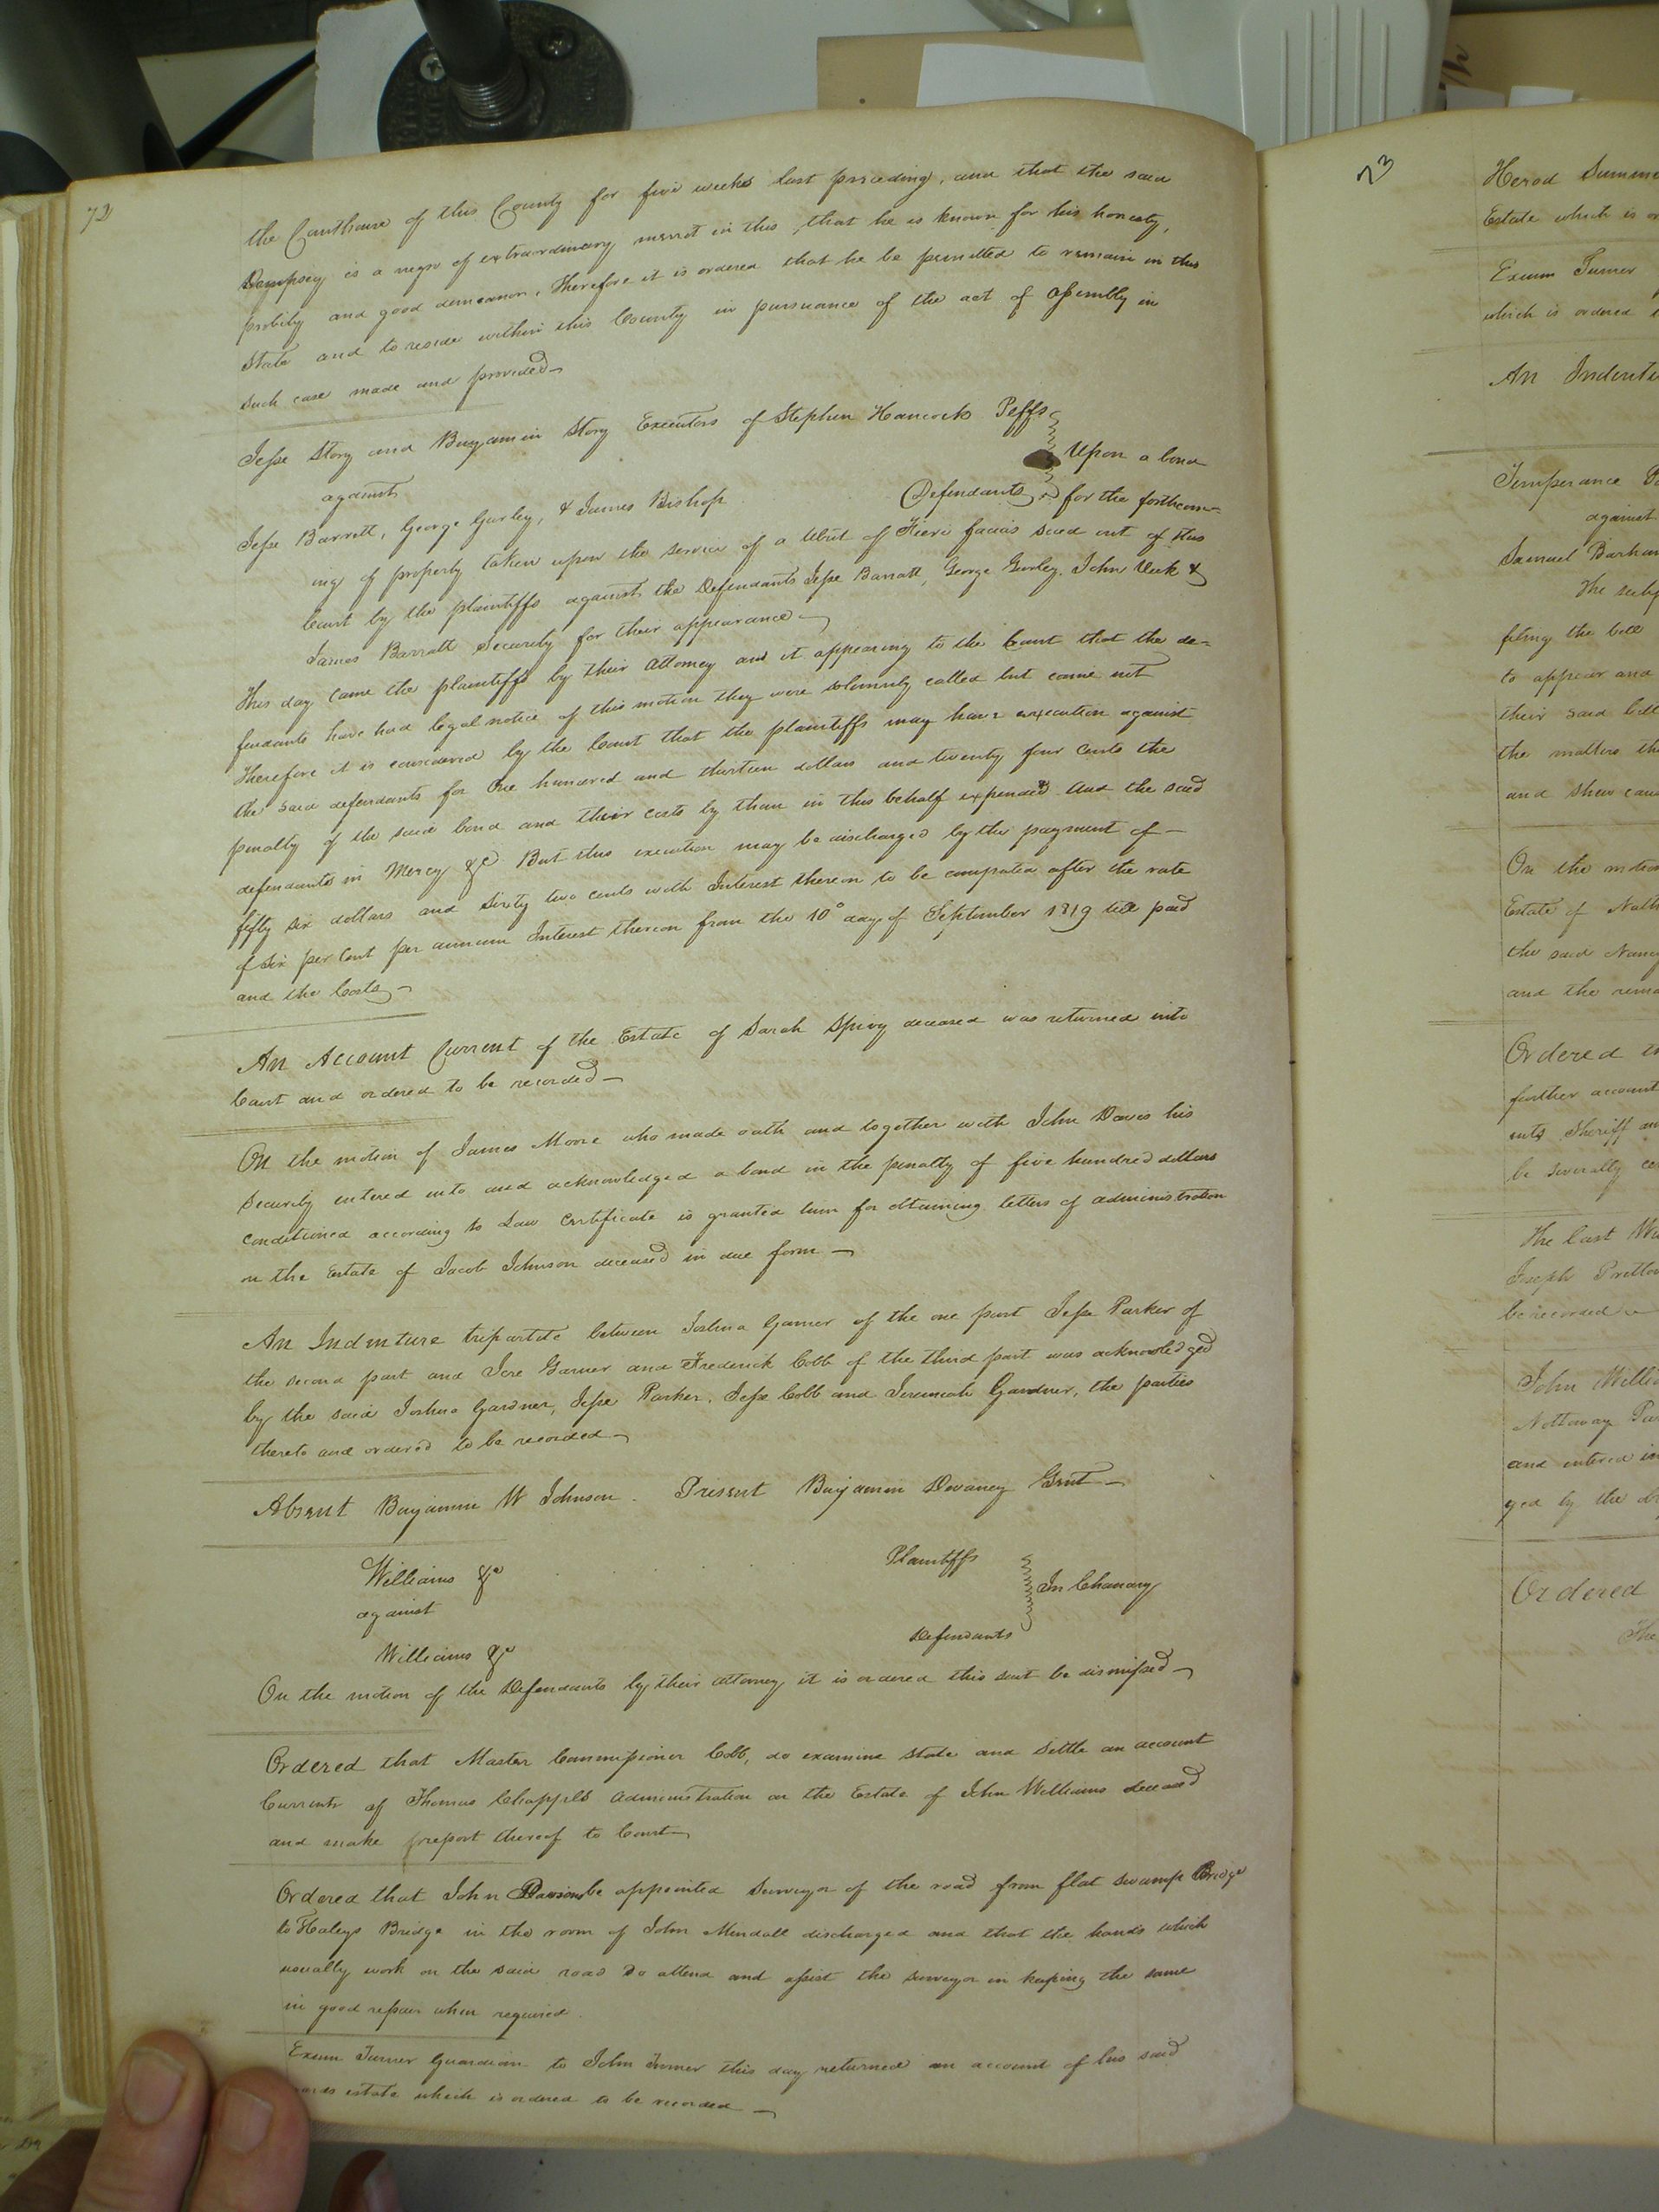 72
the Courthouse of this County for five weeks last preceding, and that the said
Dempsey is a negro of extraordinary merit in this, that he is known for his honesty,
probity and good demeanor, Therefore it is ordered that he be permitted to remain in this
State and to reside within this County in pursuance of the act of Assembly in
such case made and provided
Jesse Story and Benjamin Story Executors of Stephen Hancock Peffs
against
Upon a bond
Jesse Barrett, George Gurley, & James Bishop Defendants for the forthcom-
ing of property taken upon the service of a Writ of Fieri facias sued out of this
Court by the plaintiffs against the Defendants Jesse Barratt, George Gurley, John &
James Barratt Security for their appearance
This day came the plaintiffs by their attorney and it appearing to the Court that the de-
fendants have had legal notice of this motion they were solemnly called but came not
Therefore it is considered by the Court that the plaintiffs may have execution against
the said defendants for One hundred and thirteen dollars and twenty four Cents the
penalty of the said bond and their costs by them in this behalf expended and the said
defendants in Mercy &c. But this execution may be discharged by the payment of
fifty six dollars and sixty two cents with Interest thereon to be computed after the rate
of Six per Cent per annum Interest thereon from the 10° day of September 1819 till paid
and the Costs
An Account Current of the Estate of Sarah Spivy deceased was returned into
Court and ordered to be recorded
On the motion of James Moore who made oath and together with John Davis his
Security entered into and acknowledged a bond in the penalty of five hundred dollars
conditioned according to Law Certificate is granted him for obtaining letters of administration
on the Estate of Jacob Johnson deceased in due form
An Indenture tripartite between Joshua Garner of the one part Jesse Parker of
the second part and Jere Garner and Frederick Cobb of the third part was acknowledged
by the said Joshua Gardner, Jesse Parker, Jesse Cobb and Jeremiah Gardner, the parties
thereto and ordered to be recorded
Absent Benjamin W Johnson. Present Benjamin Devaney Gent
Williams &c Plaintiffs
against In Chancery
Williams &c Defendants
On the motion of the Defendants by their attorney it is ordered this suit be dismissed
Ordered that Master Commissioner Cobb, do examine state and settle an account
Current of Thomas Chappels administration on the Estate of John Williams deceased
and make report thereof to Court
Ordered that John be appointed Surveyor of the road from flat swamp Bridge
to Haleys Bridge in the room of John Mindall discharged and that the hands which
usually work on the said road do attend and assist the surveyor in keeping the same
in good repair when required.
Exum Turner Guardian to John Turner this day returned an account of his said
estate which is ordered to be recorded
73
Herod
Estate which is
Exum Turner
which is ordered
An
Temperance
against
Samuel
The
filing the bill
to appear and
their said bill
the matters
and shew
On the
Estate of
the said Nancy
and the
Ordered
further account
Sheriff
be severally
The last
Joseph
be recorded
John
Nottoway
and entered
ged by the
Ordered
The